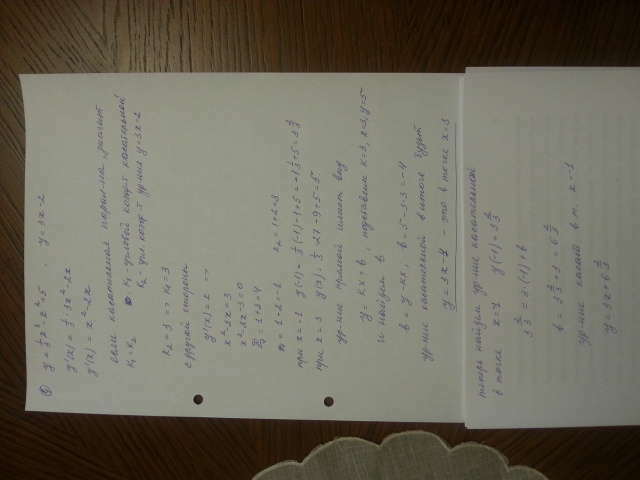 ① y = 1/3 x³ - x² + 5 , y = 3x - 2
y'(x) = 1/3 · 3x² - 2x
y'(x) = x² - 2x
если касательная парал-на, значит
k₁ = k₂ k₁ - угловой коэф-т касательной
k₂ - угл. коэф-т ур-ния y = 3x - 2
k₂ = 3 => k₁ = 3
с другой стороны
y'(x) = k =>
x² - 2x = 3
x² - 2x - 3 = 0
= 1 + 3 = 4
x₁ = 1 - 2 = -1 x₂ = 1 + 2 = 3
при x = -1 y(-1) = 1/3 · (-1) - 1 + 5 = -1 1/3 + 5 = 3 2/3
при x = 3 y(3) = 1/3 · 27 - 9 + 5 = 5
ур-ние прямой имеет вид
y = kx + b, подставим k = 3, x = 3, y = 5
и найдем b
b = y - kx, b = 5 - 3·3 = -4
ур-ние касательной в итоге будет
y = 3x - 4 - это в точке x = 3
теперь найдем ур-ние касательной
в точке x = -1 y(-1) = 3 2/3
3 2/3 = 3·(-1) + b
b = 3 2/3 + 3 = 6 2/3
ур-ние касат. в т. x = -1
y = 3x + 6 2/3